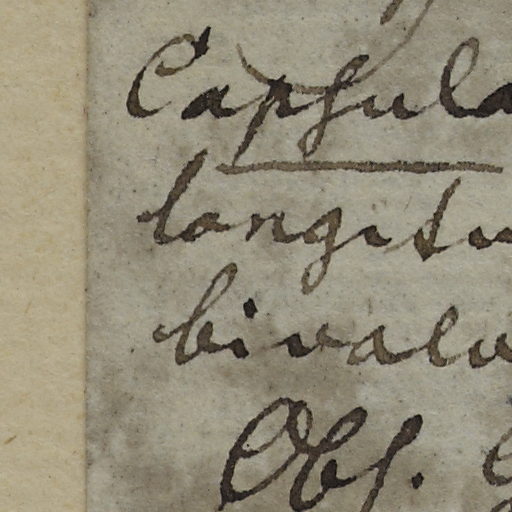 Capsula
longitu
bivalv
Obs.